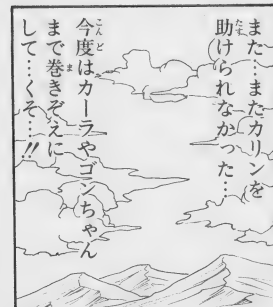 また…またカリンを
助けられなかった…
今度はカーラやゴンちゃん
まで巻きぞえに
して…くそ…!!